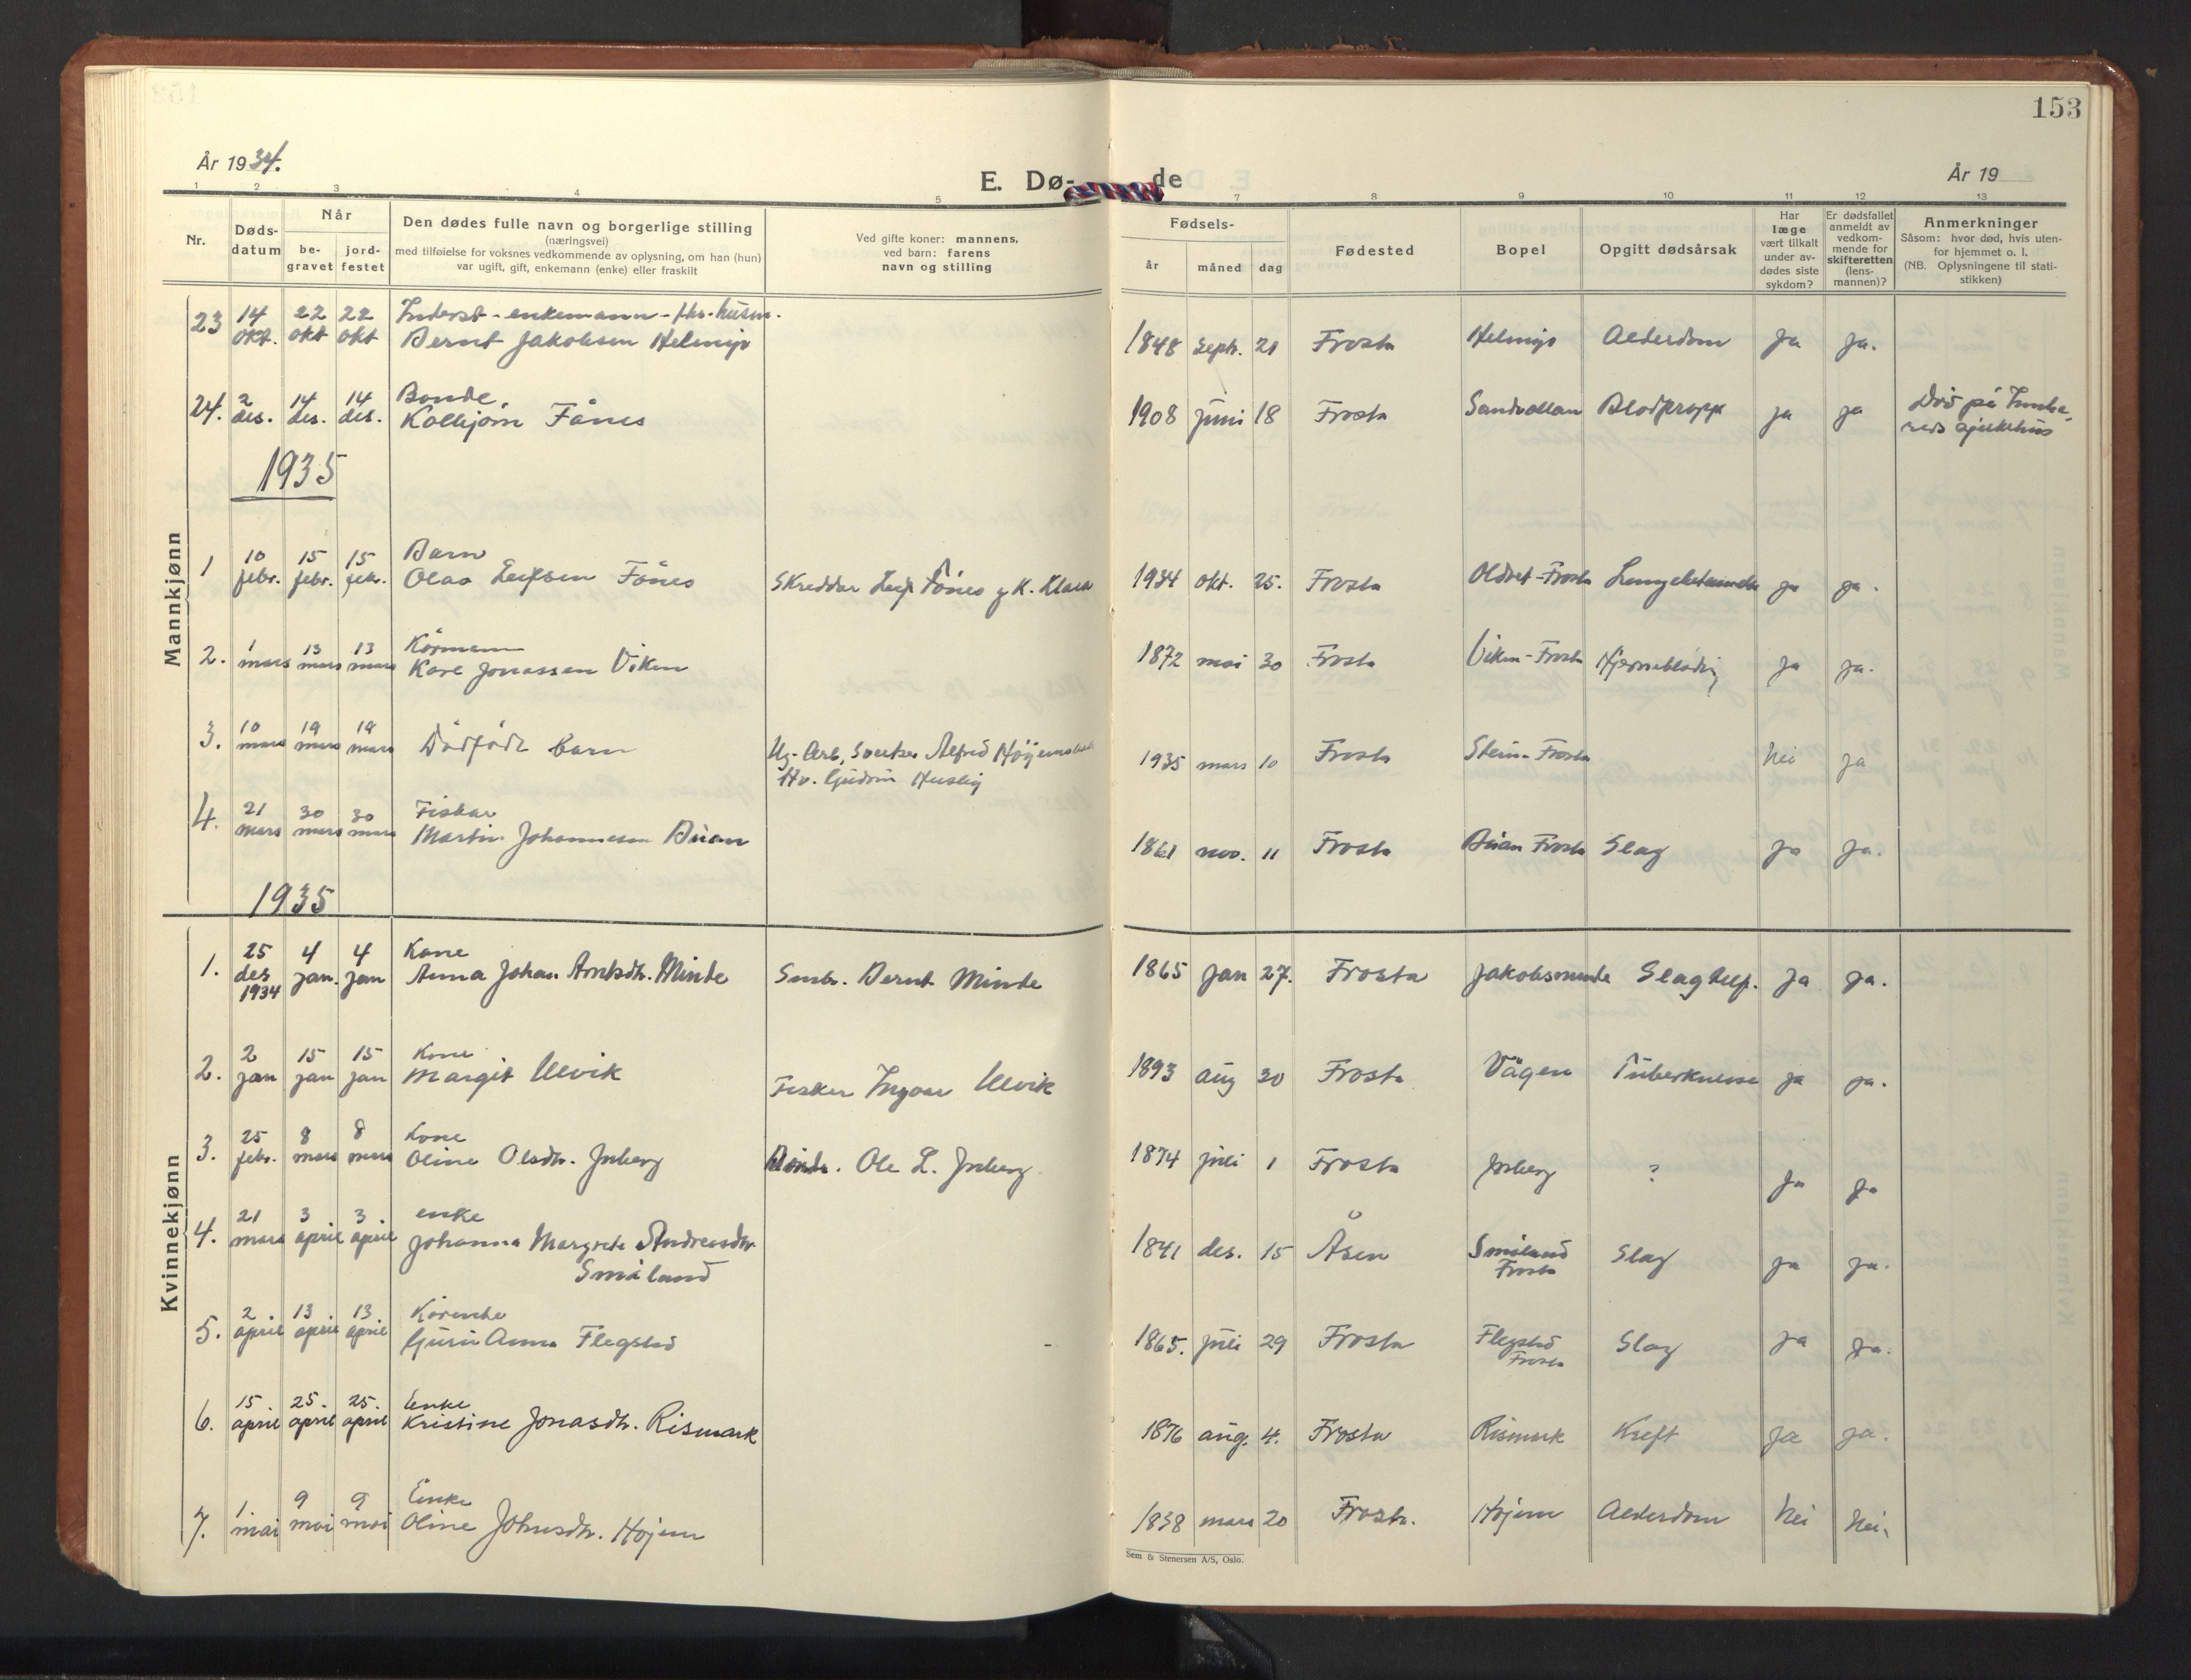 153
År 1934.
E. Dø-
de
År 19
1 2 3 4 5 7 8 9 10 11 12 13
Nr.
Døds-
datum
Når
be-
gravet
jord-
festet
Den dødes fulle navn og borgerlige stilling
(næringsvei)
med tilføielse for voksnes vedkommende av oplysning, om han (hun)
var ugift, gift, enkemann (enke) eller fraskilt
Ved gifte koner: mannens,
ved barn: farens
navn og stilling
Fødsels-
år
måned
dag
Fødested
Bopel
Opgitt dødsårsak
Har
læge
vært tilkalt
under av-
dødes siste
sykdom?
Er dødsfallet
anmeldt av
vedkom-
mende for
skifteretten
(lens-
mannen)?
Anmerkninger
Såsom: hvor død, hvis uten-
for hjemmet o. l.
(NB. Oplysningene til stati-
stikken)
Mannkjønn
23 14 okt. 22 okt 22 okt
Inderst - enkemann - fhv. husm.
Bernt Jakobsen Helmjo 1848 sept. 21 Frosta Helmjo Alderdom Ja Ja.
24. 2 des. 14 des. 14 des.
Bonde.
Kolbjørn Fånes 1908 juni 18 Frosta Sandvollan Blodpropp ja ja Död på
sjukehus
1935
1 10 febr. 15 febr. 15 febr.
Barn
Olav Leifsen Fånes Skreddar Leif Fånes g K. Klara 1934 okt. 25. Frosta Frosta ja ja.
2. 1 mars 13 mars 13 mars
Kårmann
Kare Jonassen Viken 1872 mai 30 Frosta Viken - Frosta Hjerneblødn. Ja Ja.
3. 10 mars 19 mars 19 mars
Dødfødt barn Ug. Arb. Alfred
Hu. Gudrun 1935 mars 10 Frosta Stein - Frosta Nei ja
4. 21 mars 30 mars 30 mars
Fiskar
Martin Johannesen Buan 1861 nov. 11 Frosta Buan Frosta Slag Ja Ja.
1935
Kvinnekjønn
1. 25 des 1934 4 jan. 4 jan
Kone
Anna Johan Arntsdtr. Minde Smbr. Bernt Minde 1865 jan 27. Frosta Jakobsminde Slagtilf. Ja ja.
2. 2 jan 15 jan 15 jan
Kone
Margit Ulvik Fisker Ingvar Ulvik 1893 aug 30 Frosta Vågen Tuberkulose ja ja.
3. 25 febr. 8 mars 8 mars
Kone
Oline Olsdtr. Juberg Ole L. Juberg 1874 juli 1 Frosta Juberg ? Ja Ja
4. 21 mars 3 april 3. april
enke
Johanna Margrete Andreasdtr.
Småland 1841 des. 15 Åsen Småland
Frosta Slag ja ja.
5. 2 april 13 april 13. april
Kårenke
Guru Anna Flegstad - 1865. juli 29 Frosta Flegstad
Frosta Slag ja Ja.
6. 15. april 25. april 25. april
Enke
Kristine Jonasdtr. Rismark 1876 aug. 4. Frosta Rismark Kreft Ja Ja.
7. 1 mai 9 mai 9 mai
Enke
Oline Johnsdtr. Höjem 1838 mars 20 Frosta. Höjem Alderdom Nei Nei.
Sem & Stenersen A/S, Oslo.